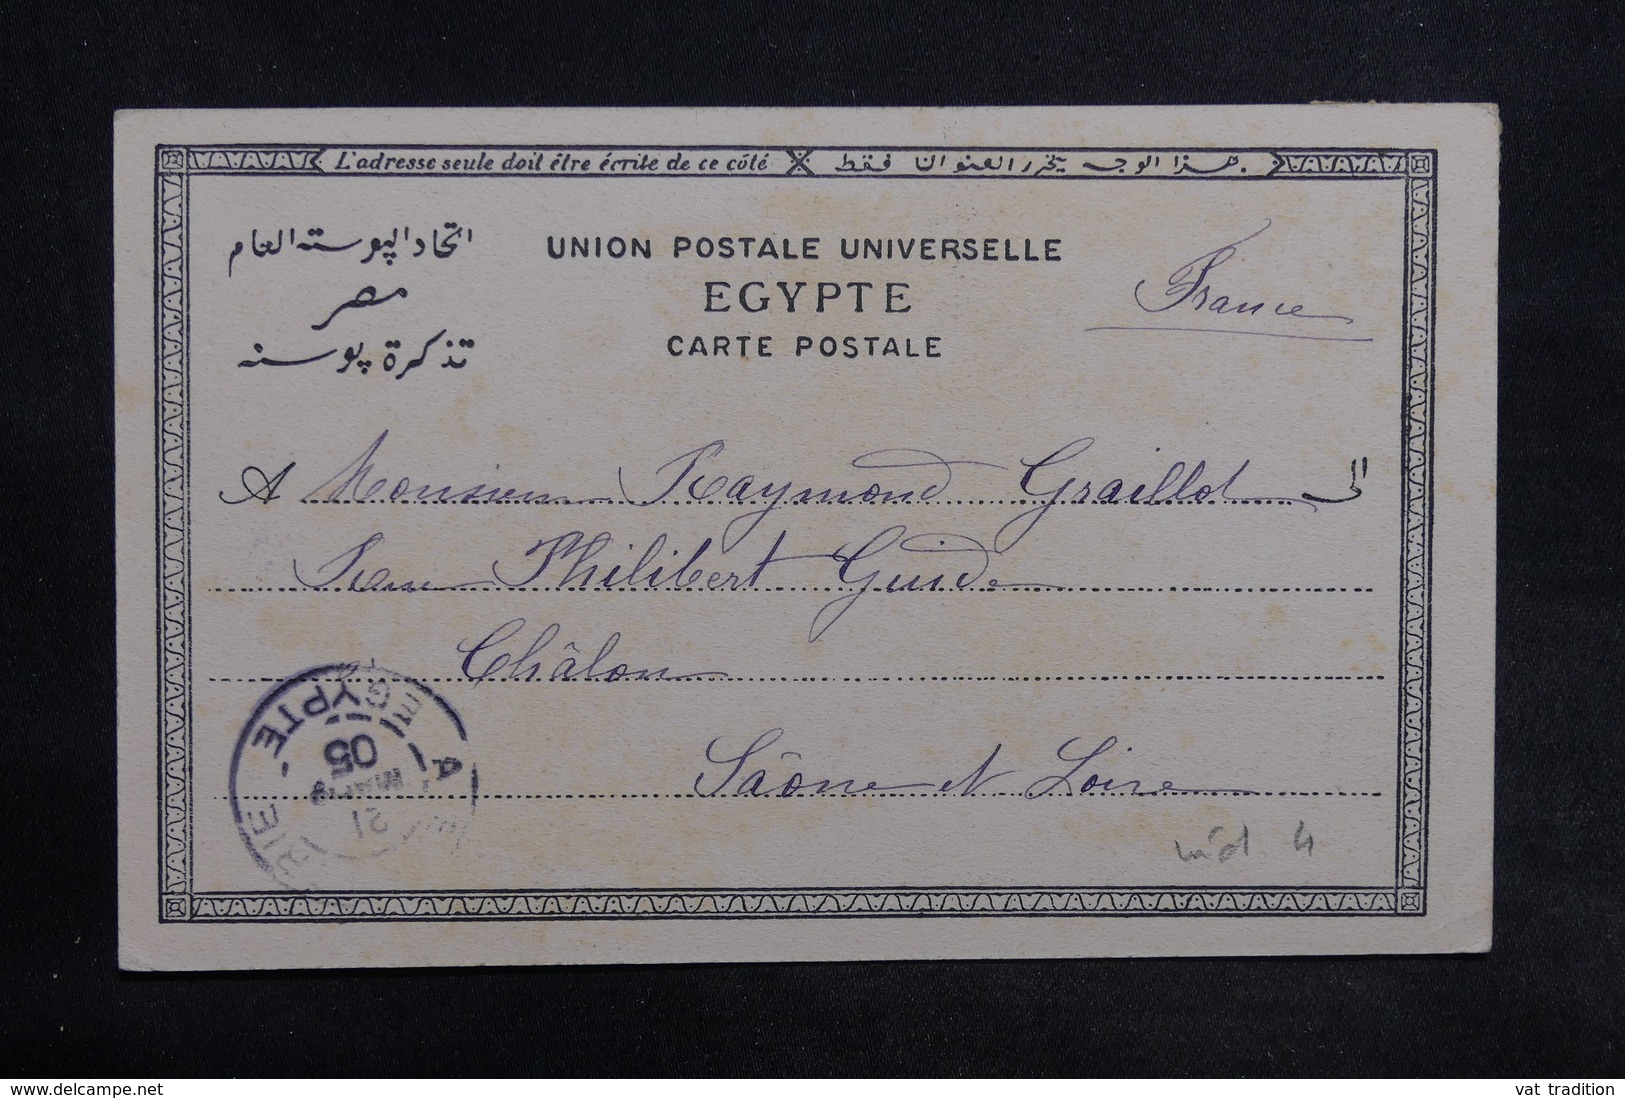 L'adresse seule doit être écrite de ce côté هذا الوجه يحرر العنوان فقط
اتحاد البوسته العام
مصر
تذكرة بوسته
UNION POSTALE UNIVERSELLE
EGYPTE
CARTE POSTALE
France
A Monsieur Raymond Graillot الى
Rue Philibert Guide
Châlon
Saône et Loire
EGYPTE
05
21
4
www.delcampe.net
vat_tradition